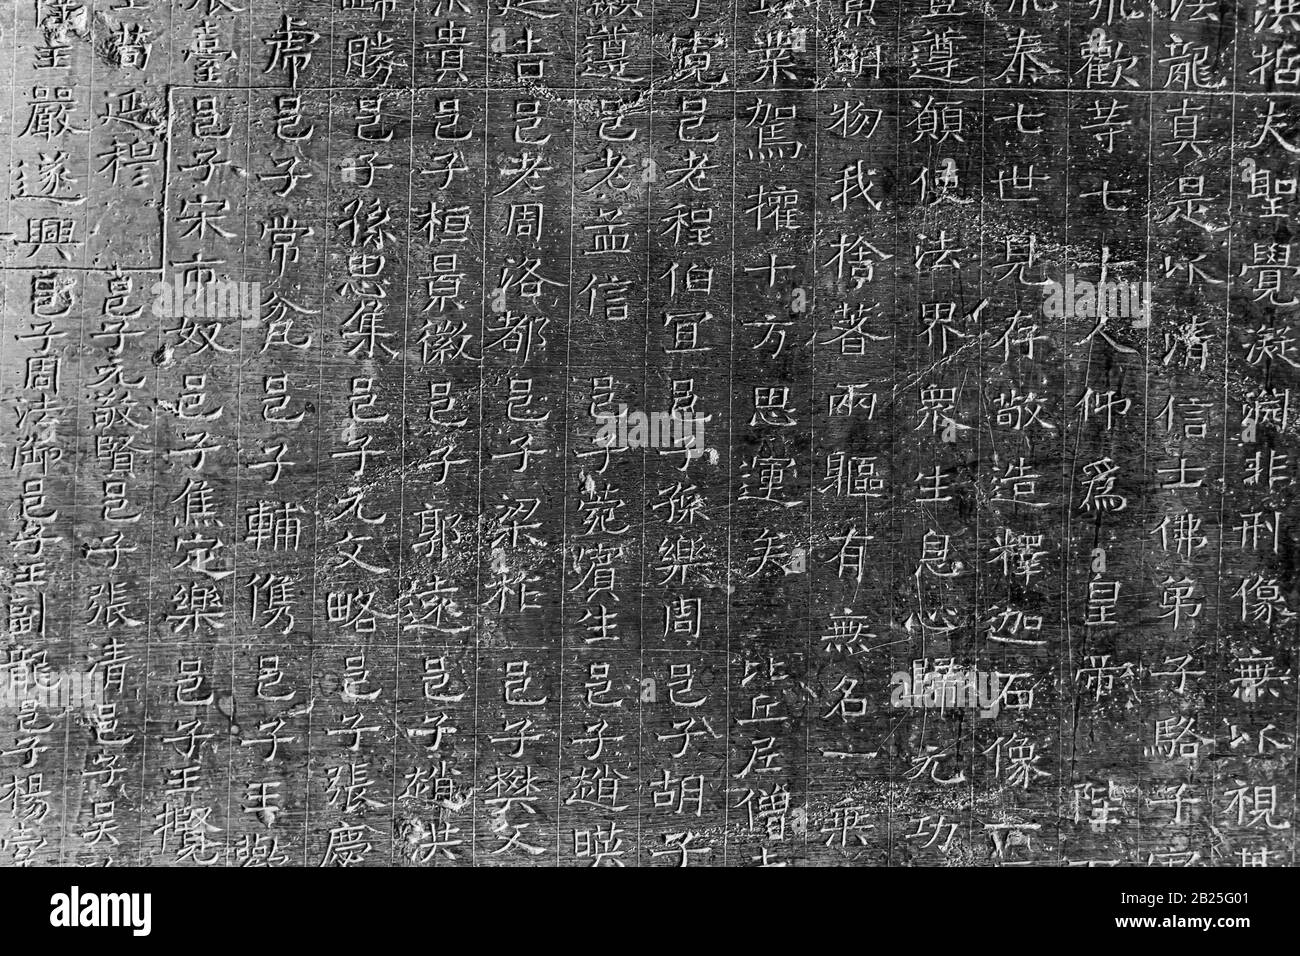 夫聖覺凝淵非刑像無以視
龍真是以清信士佛弟子駱子
歡等七十人仰為皇帝陛
泰七世見存敬造釋迦石像
遵願使法界眾生息心歸元功
物我捨著兩軀有無名一乘
業駕擁十方思運矣 比丘尼僧
寬 邑老程伯宜 邑子孫樂周 邑子胡子
遵 邑老孟信 邑子菀賓生 邑子趙暎
吉 邑老周洛都 邑子梁柞 邑子樊文
貴 邑子桓景徽 邑子郭遠 邑子趙洪
勝 邑子孫思集 邑子元文略 邑子張慶
虎 邑子常瓮 邑子輔儁 邑子王歡
臺 邑子宋市奴 邑子焦定樂 邑子王擥
延穆 邑子元敬賢 邑子張清 邑子吳
嚴遂興 邑子周達御 邑子王副龍 邑子楊
alamy
Image ID: 2B25G01
www.alamy.com